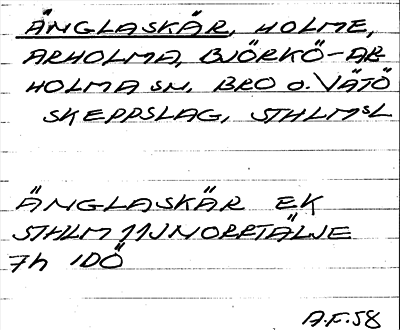 ÄNGLASKÄR, HOLME,
ARHOLMA, BJÖRKÖ-AR
HOLMA SN. BRO o. VÄTÖ
SKEPPSLAG, STHLMSL
ÄNGLASKÄR EK
STHLM 11J NORRTÄLJE
7h IDÖ
A.F. 58